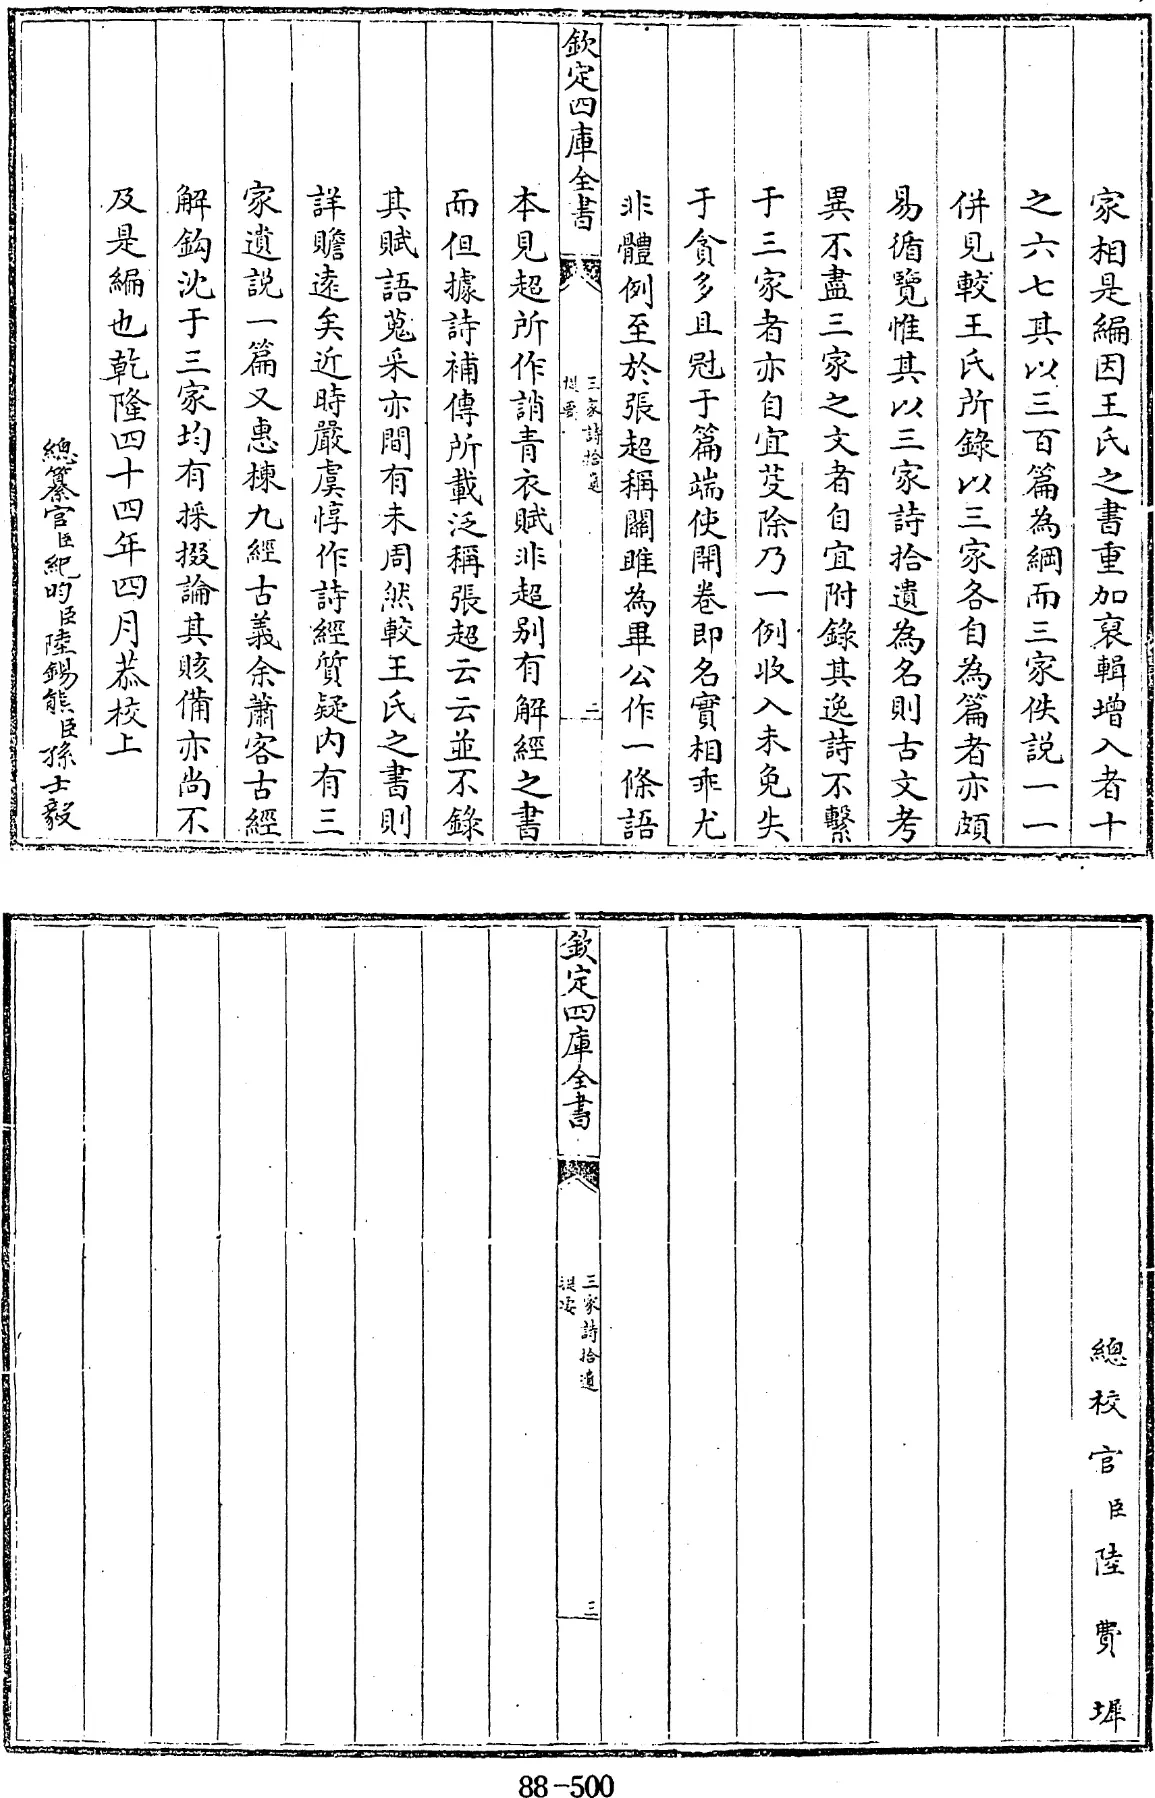 家相是編因王氏之書重加裒輯增入者十
之六七其以三百篇為綱而三家佚說一一
併見較王氏所錄以三家各自為篇者亦頗
易循覽惟其以三家詩拾遺為名則古文考
異不盡三家之文者自宜附錄其逸詩不繫
于三家者亦自宜芟除乃一例收入未免失
于貪多且冠于篇端使開卷即名實相乖尤
非體例至於張超稱關雎為畢公作一條語
欽定四庫全書
三家詩拾遺
提要
二
本見超所作誚青衣賦非超别有解經之書
而但據詩補傳所載泛稱張超云云並不錄
其賦語蒐采亦間有未周然較王氏之書則
詳贍遠矣近時嚴虞惇作詩經質疑内有三
家遺説一篇又惠棟九經古義余蕭客古經
解鈎沈于三家均有採掇論其賅備亦尚不
及是編也乾隆四十四年四月恭校上
總纂官臣紀昀臣陸錫熊臣孫士毅
總校官臣陸費墀
欽定四庫全書
三家詩拾遺
提要
三
88-500